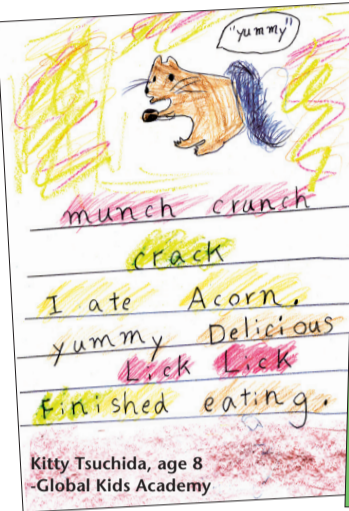 "yummy"
munch crunch
crack
I ate Acorn.
yummy Delicious
Lick Lick
Finished eating.
Kitty Tsuchida, age 8
-Global Kids Academy